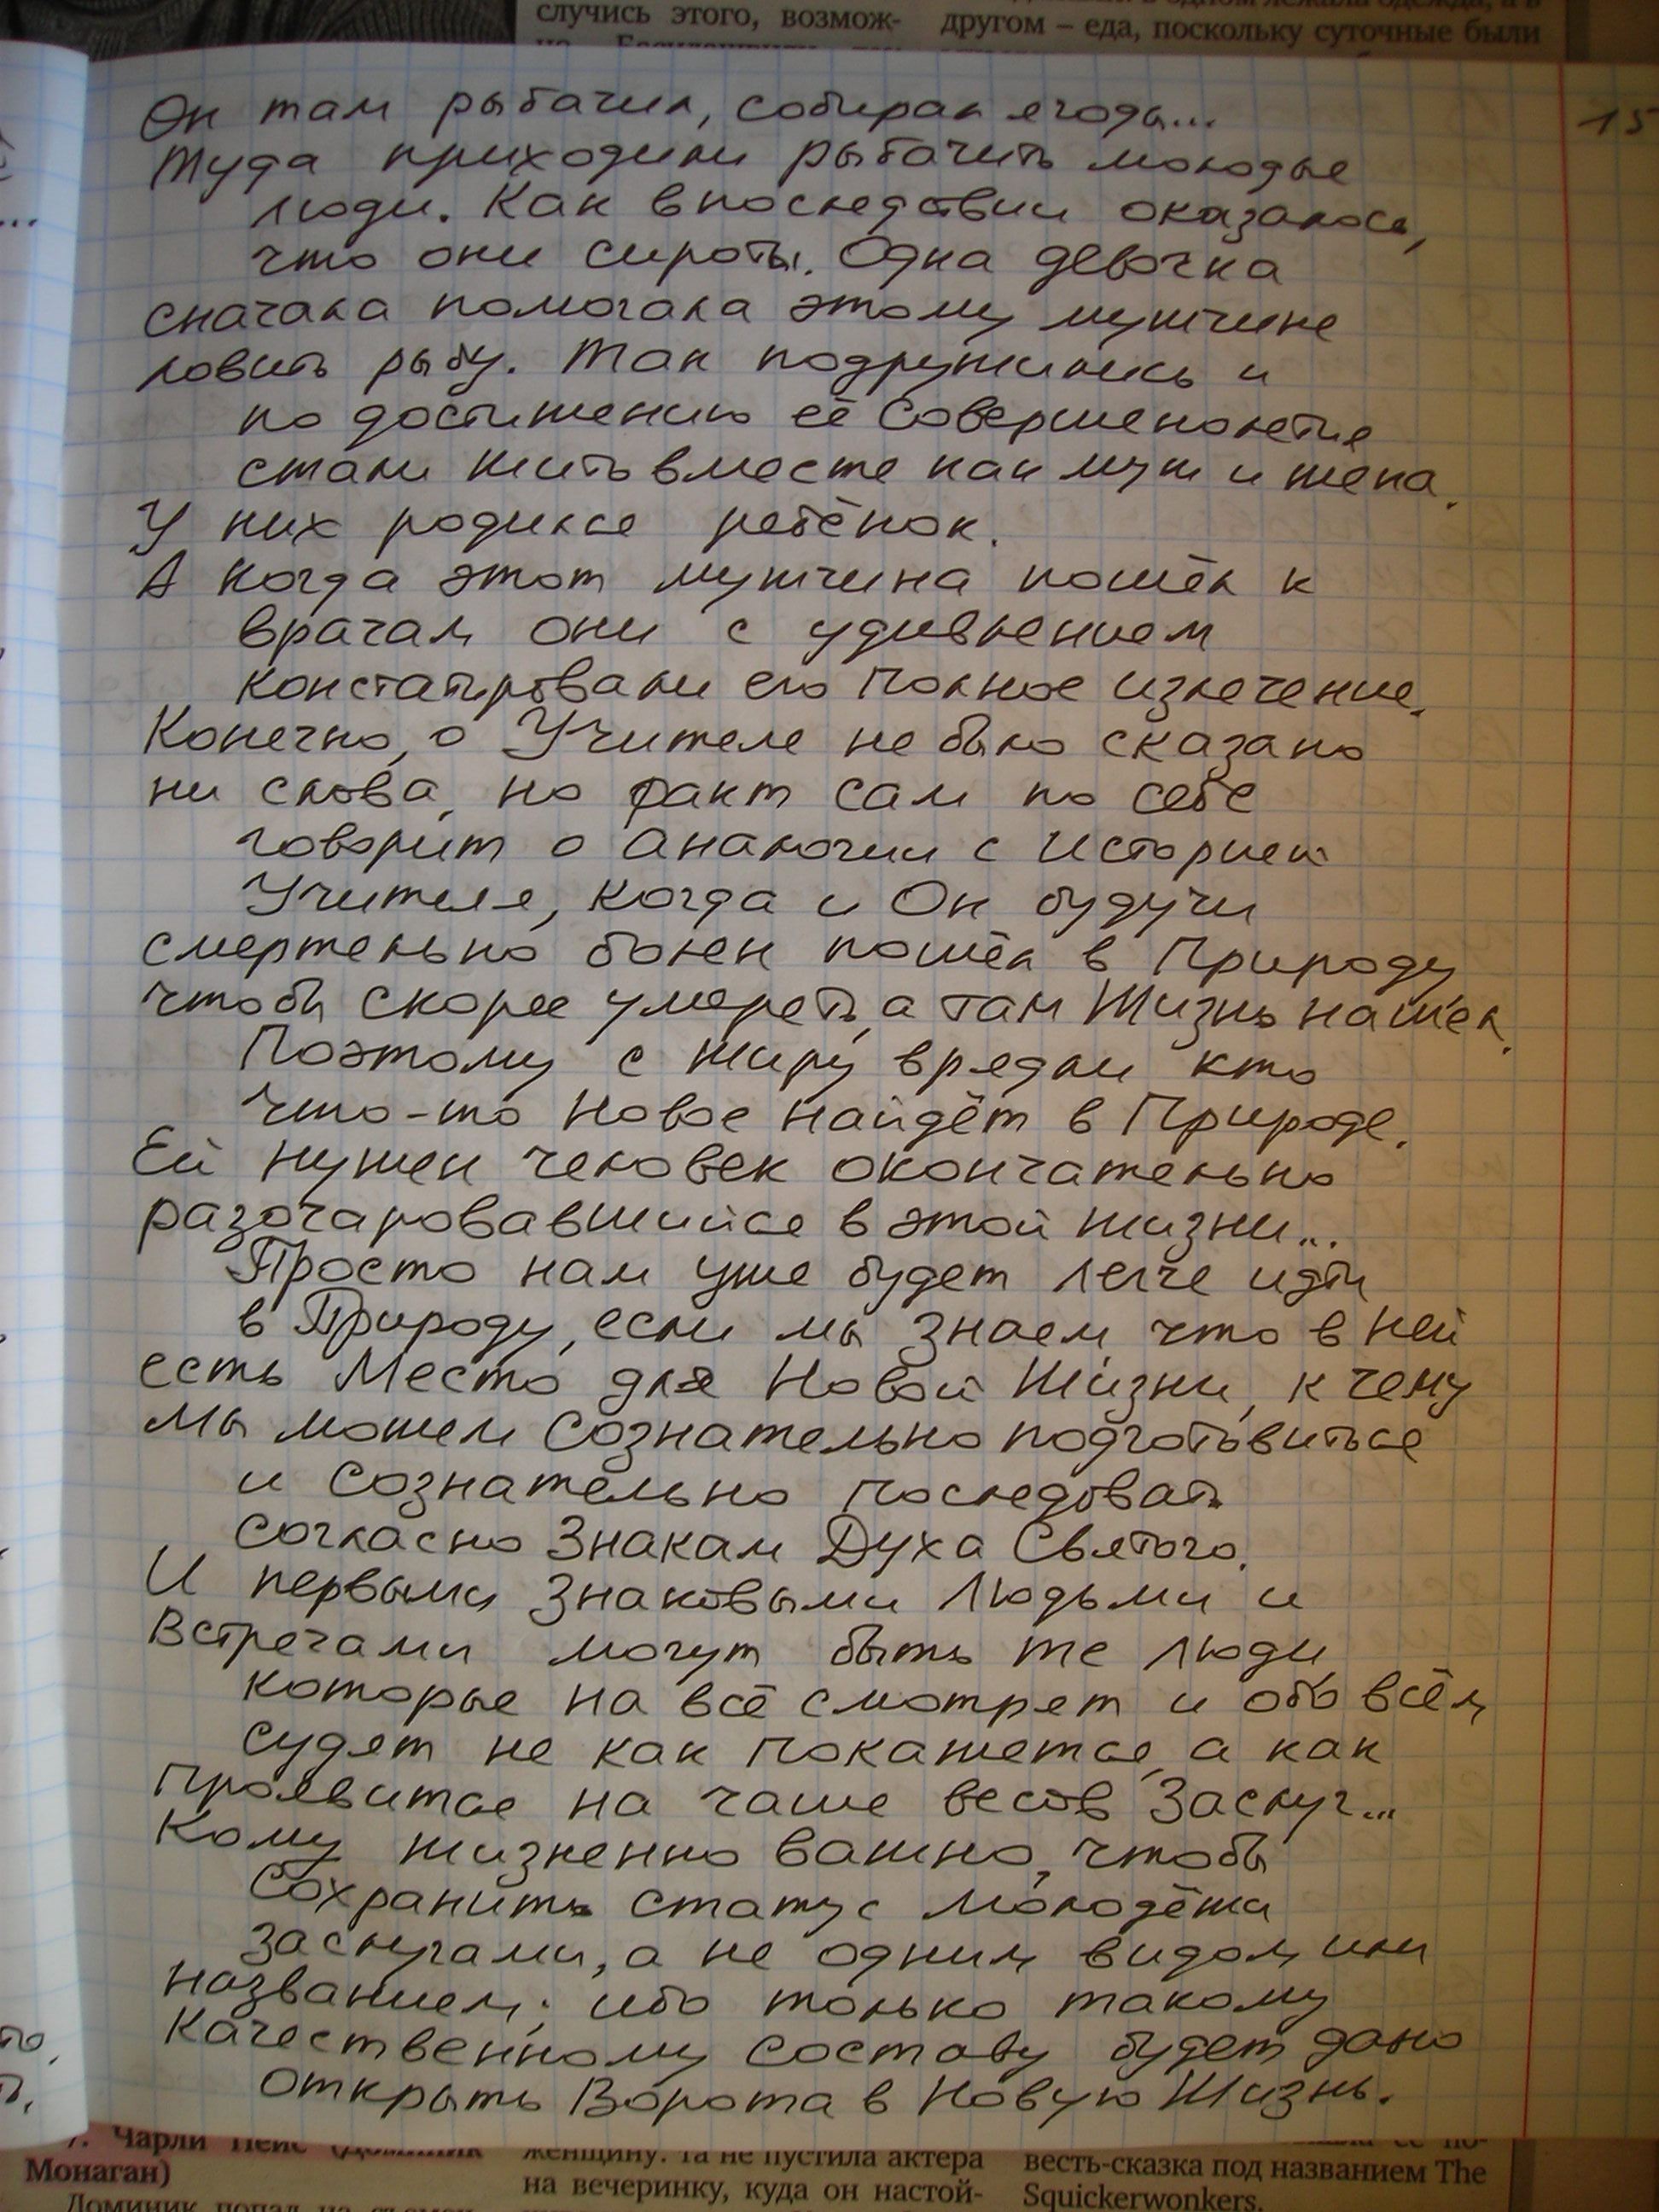 случись этого, возмож-
другом – еда, поскольку суточные были
15
Он там рыбачил, собирал ягоды...
Туда приходили рыбачить молодые
люди. Как впоследствии оказалось,
что они сироты. Одна девочка
сначала помогала этому мужчине
ловить рыбу. Так подружились и
по достижению её Совершенолетия
стали жить вместе как муж и жена.
У них родился ребёнок.
А когда этот мужчина пошёл к
врачам они с удивлением
констатировали его полное излечение.
Конечно, о Учителе не было сказано
ни слова, но факт сам по себе
говорит о аналогии с Историей
Учителя, когда и Он будучи
смертельно болен пошёл в Природу
чтобы скорее умереть, а там Жизнь нашёл.
Поэтому с жиру врядли кто
что-то Новое найдёт в Природе.
Ей нужен человек окончательно
разочаровавшийся в этой жизни...
Просто нам уже будет легче идти
в Природу, если мы знаем, что в ней
есть Место для Новой Жизни, к чему
мы можем Сознательно подготовиться
и Сознательно последовать
согласно Знакам Духа Святого.
И первыми Знаковыми Людьми и
Встречами могут быть те люди,
которые на всё смотрят и обо всём
судят не как покажется, а как
проявится на чаше весов Заслуг...
Кому жизненно важно, чтобы
Сохранить статус Молодёжи
заслугами, а не одним видом или
названием; ибо только такому
Качественному составу будет дано
открыть Ворота в Новую Жизнь.
7. Чарли Пейс (Доминик
Монаган)
женщину. Та не пустила актера
на вечеринку, куда он настой-
весть-сказка под названием The
Squickerwonkers.